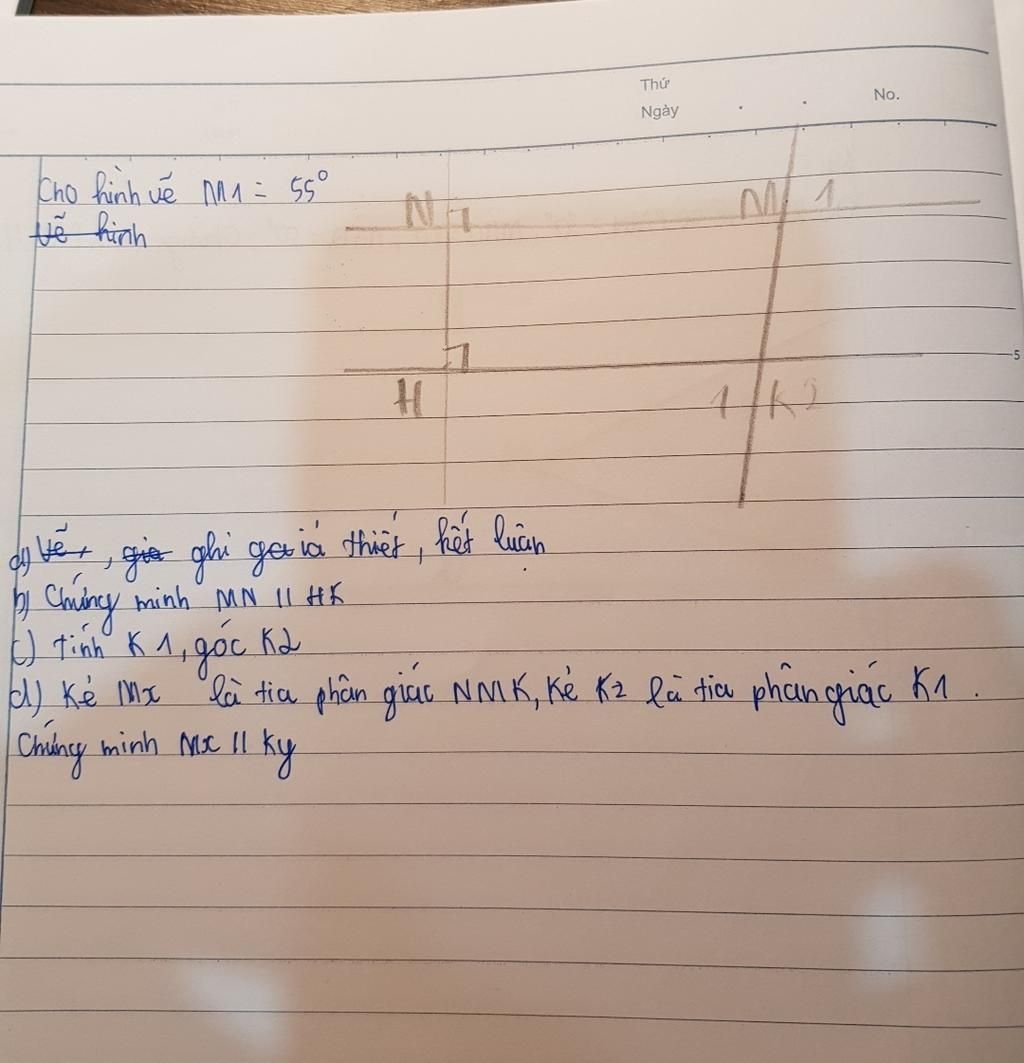 Thứ
Ngày . . No.
Cho hình vẽ M1 = 55°
Vẽ hình
N M 1
5
H 1 K 2
a) Vẽ, giả ghi giả thiết, kết luận
b) Chứng minh MN || HK
c) tính K1, góc K2
d) Kẻ Mx là tia phân giác NMK, Kẻ Kz là tia phân giác K1.
Chứng minh Mx || Ky